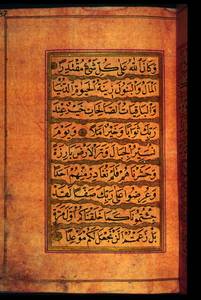 وَكَانَ اللَّهُ عَلَى كُلِّ شَيْءٍ مُقْتَدِرًا
الْمَالُ وَالْبَنُونَ زِينَةُ الْحَيَوةِ الدُّنْيَا
وَالْبَاقِيَاتُ الصَّالِحَاتُ خَيْرٌ عِنْدَ
رَبِّكَ ثَوَابًا وَخَيْرٌ أَمَلًا وَيَوْمَ
نُسَيِّرُ الْجِبَالَ وَتَرَى الْأَرْضَ بَارِزَةً
وَحَشَرْنَاهُمْ فَلَمْ نُغَادِرْ مِنْهُمْ أَحَدًا
وَعُرِضُوا عَلَى رَبِّكَ صَفًّا لَقَدْ
جِئْتُمُونَا كَمَا خَلَقْنَاكُمْ أَوَّلَ مَرَّةٍ
بَلْ زَعَمْتُمْ أَلَّنْ نَجْعَلَ لَكُمْ مَوْعِدًا